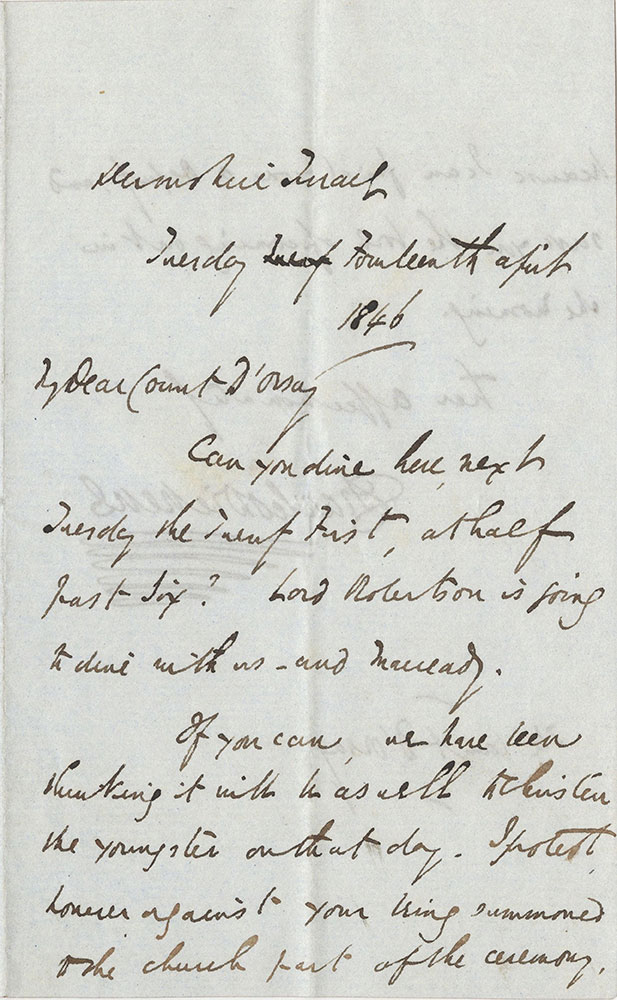 Devonshire Terrace
Tuesday Fourteenth April
1846
My Dear Count D'Orsay
Can you dine here next
Tuesday the Twenty First, at half
past Six? Lord Robertson is going
to dine with us - and Macready.
If you can, we have been
thinking it will be as well to christen
the youngster on that day. I protest,
however against your being summoned
to the church part of the ceremony,